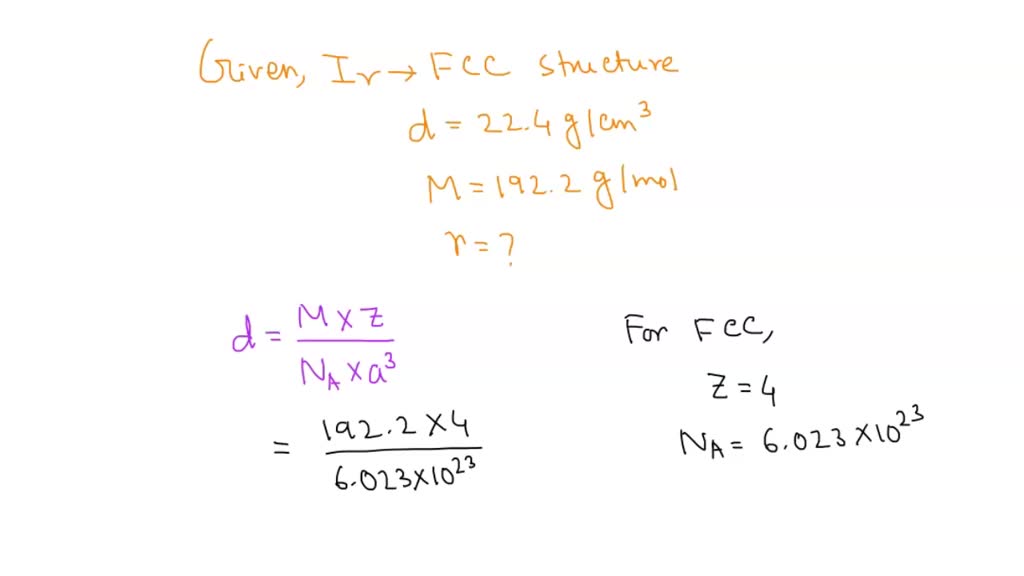 Given, Ir → FCC structure
d = 22.4 g/cm³
M = 192.2 g/mol
r = ?
d = M × Z / N_A × a³
= 192.2 × 4 / 6.023 × 10²³
For FCC,
Z = 4
N_A = 6.023 × 10²³